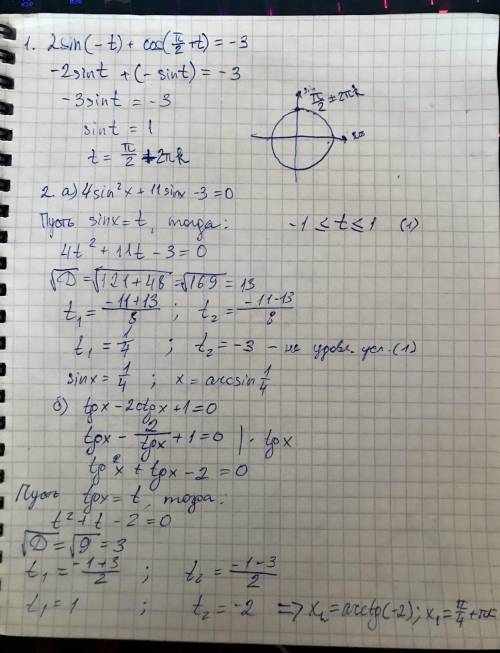 1. 2sin(-t) + cos(π/2 + t) = -3
-2sint + (-sint) = -3
-3sint = -3
sint = 1
t = π/2 + 2πk
π/2 ± 2πk
2. а) 4sin²x + 11sinx - 3 = 0
Пусть sinx = t, тогда: -1 ≤ t ≤ 1 (1)
4t² + 11t - 3 = 0
√D = √121+48 = √169 = 13
t₁ = -11+13/8 ; t₂ = -11-13/8
t₁ = 1/4 ; t₂ = -3 - не удовл. усл. (1)
sinx = 1/4 ; x = arcsin 1/4
б) tgx - 2ctgx + 1 = 0
tgx - 2/tgx + 1 = 0 | · tgx
tg²x + tgx - 2 = 0
Пусть tgx = t, тогда:
t² + t - 2 = 0
√D = √9 = 3
t₁ = -1+3/2 ; t₂ = -1-3/2
t₁ = 1 ; t₂ = -2 => x₂ = arctg(-2); x₁ = π/4 + πk